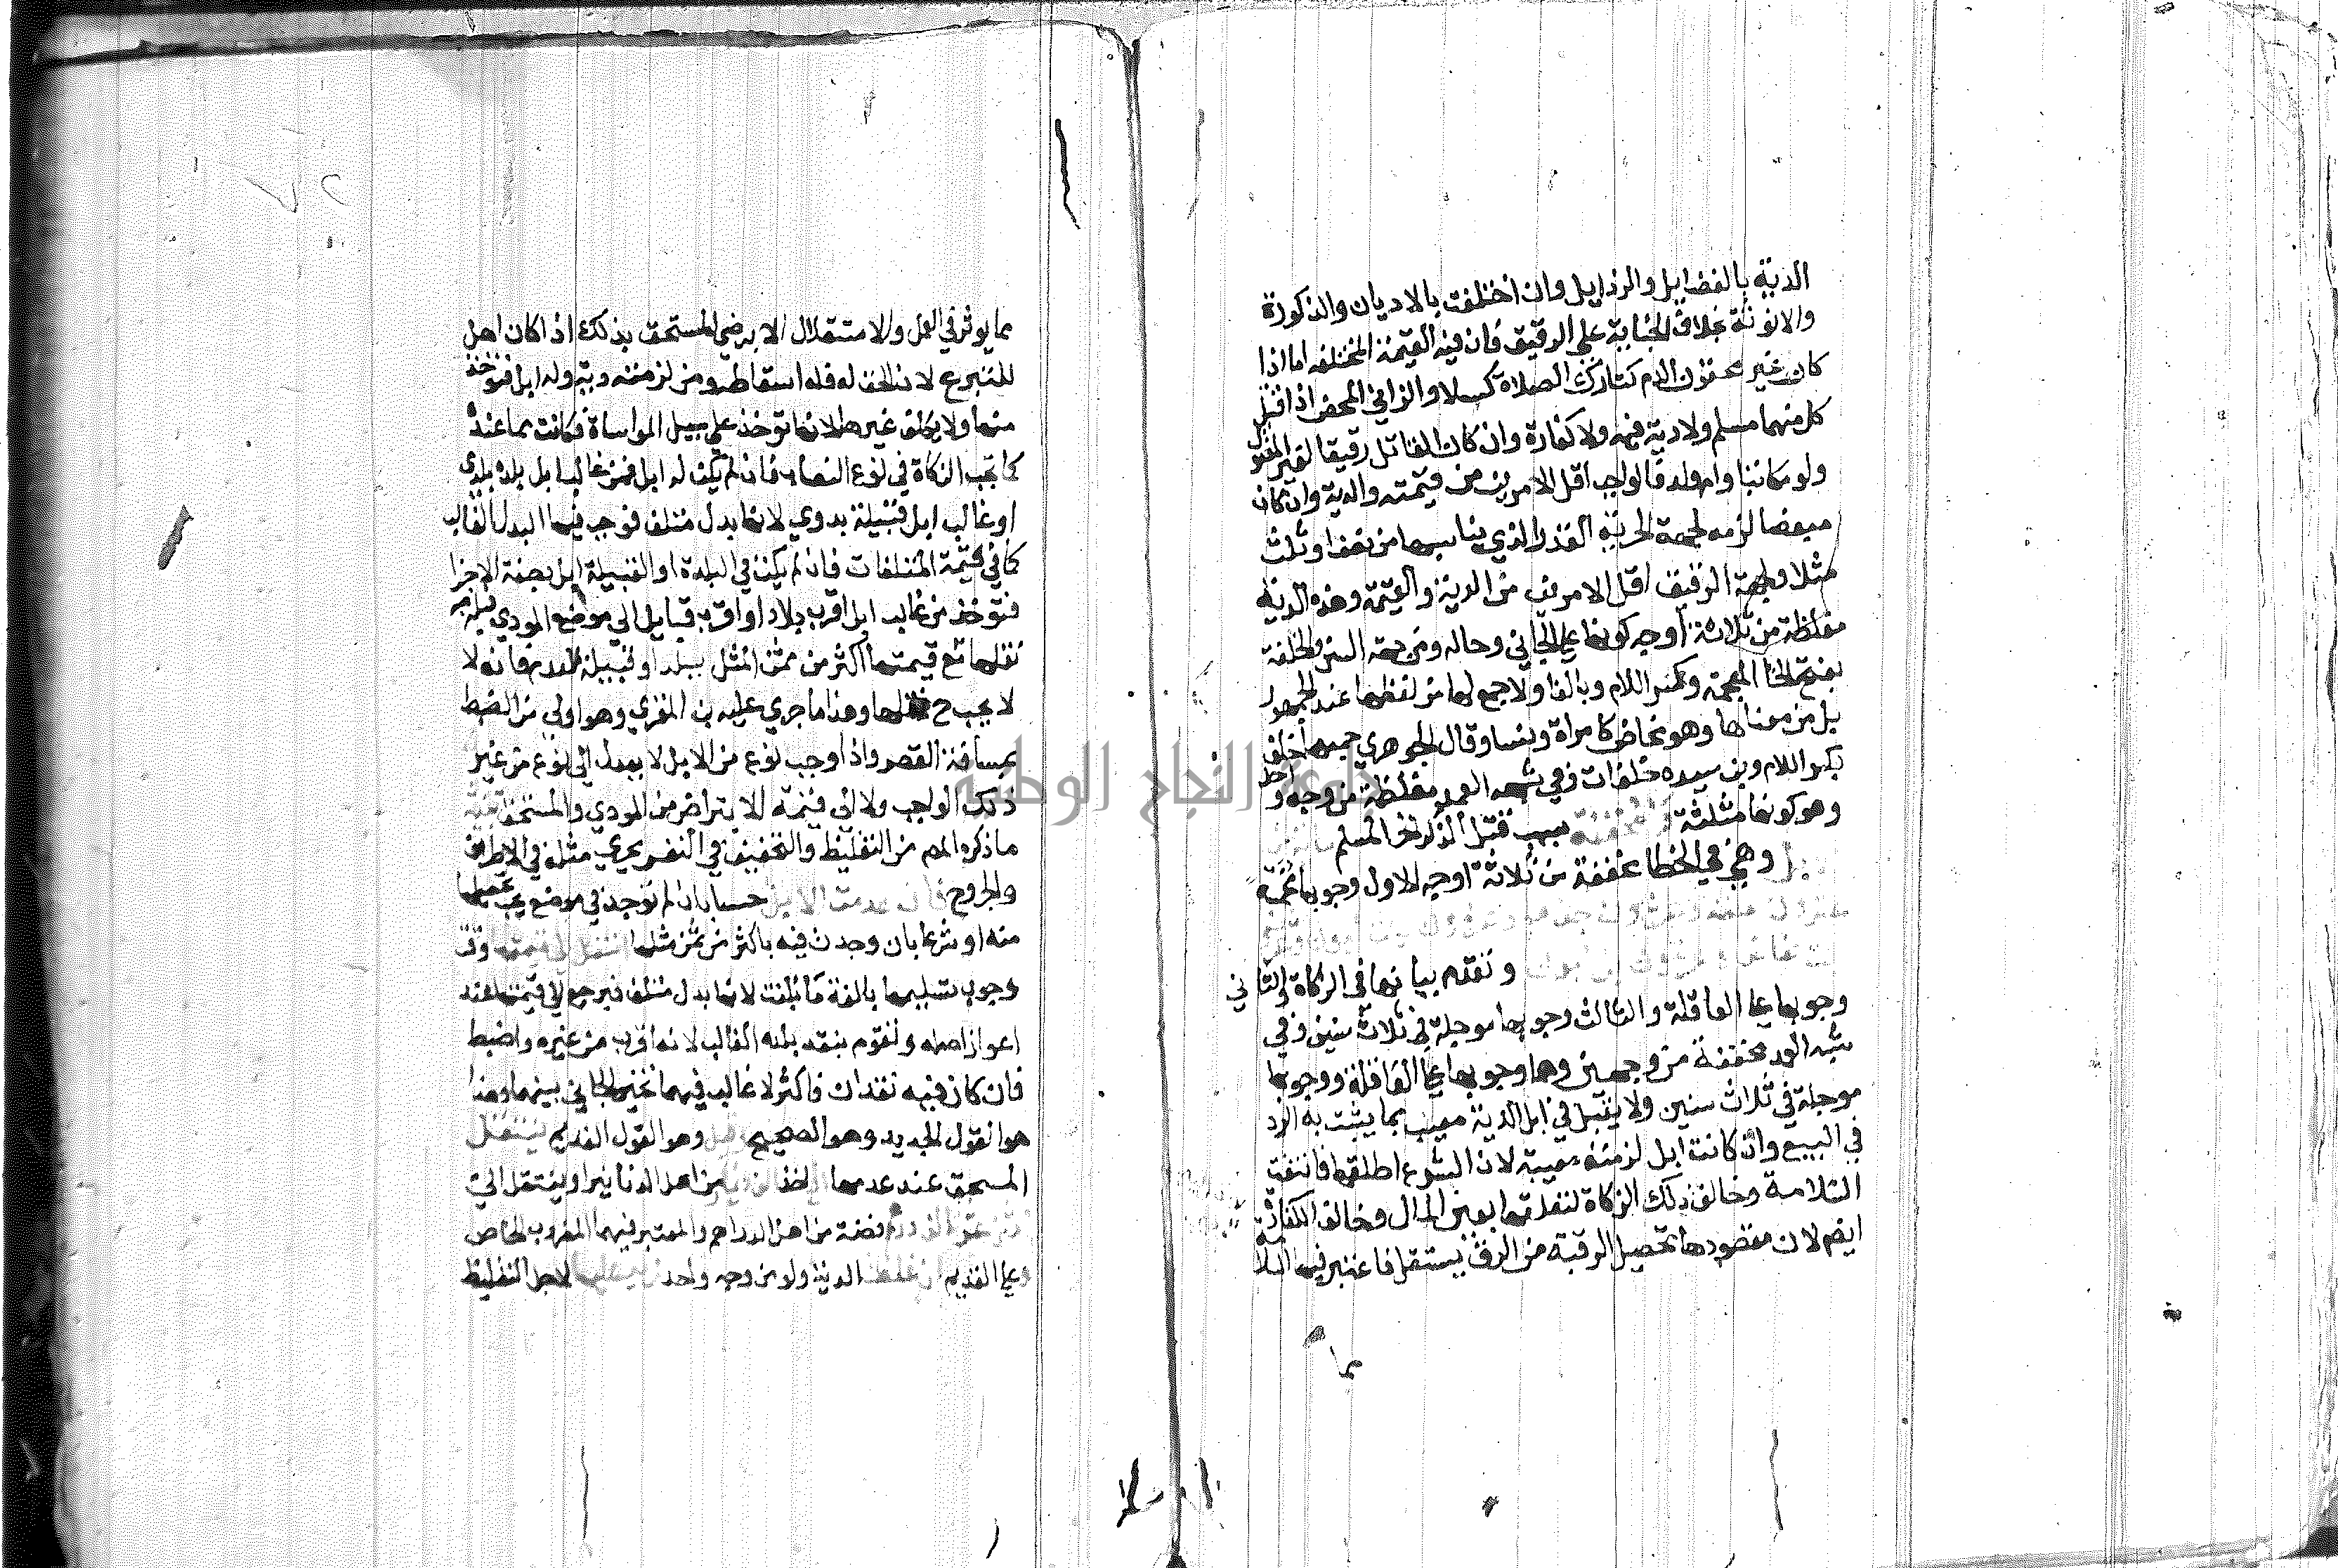 الدية بالفضايل والرذايل وان اختلفت بالاديان والذكورة
والانوثة بخلاف الجناية علي الرقيق فان فيه القيمة المختلفه اما اذا
كان غير محقون الدم كتارك الصلاة كسلا والزاني المحصن اذا قتل
كل منهما مسلم ولا دية فيه ولا كفارة وان كان القاتل رقيقا لغير المقتول
ولو مكاتبا وام ولد فالواجب اقل الامرين من قيمته والدية وان كان
مبعضا لزمه لجهة الحرية القدر الذي يناسبها من نصف او ثلث
مثلا ولجهة الرقيق اقل الامرين من الدية والقيمة وهذه الدية
مغلظة من ثلاثة اوجه كونها علي الجاني وحاله ومن جهة السن والخلفة
بفتح الخا المعجمة وكسر اللام وبالفا ولا جمع لها من لفظها عند الجمهور
بل من معناها وهو مخاض كامراة ونسا وقال الجوهري جمعها خلف
بكسر اللام وبن سيده خلفات وفي شبه العمد مغلظة من وجه واحد
وهو كونها مثلثة مخففة بسبب قتل الذكر الحر المسلم
وهي في الخطا مخففة من ثلاثة اوجه الاول وجوبها مخمسة
وتقدم بيانها في الزكاة والثاني
وجوبها علي العاقلة والثالث وجوبها موجلة في ثلاث سنين وفي
شبه العمد مخففة من وجهين وهما وجوبها علي العاقلة ووجوبها
موجلة في ثلاث سنين ولا يقبل في ابل الدية معيب بما يثبت به الرد
في البيع وان كانت ابل لزمته معيبة لان الشرع اطلقها فاقتضت
السلامة وخالف ذلك الزكاة لتعلقها بعين المال وخالف الكفارة
ايضم لان مقصودها تحصيل الرقبة من الرق يستقل فاعتبر فيها السلامة
مما
مما يوثر في العمل والاستقلال الا برضي المستحق بذلك اذا كان اهل
للتبرع لان الحق له فله اسقاطه ومن لزمته دية وله ابل فتوخذ
منها ولا يكلف غيرها لانها توخذ علي سبيل المواساة فكانت مما عنده
كما تجب الزكاة في نوع النصاب فان لم يكن له ابل فمن غالب ابل بلده بلدي
او غالب ابل قبيلة بدوي لانها بدل متلف فوجب فيها البدل الغالب
كما في قيمة المتلفات فان لم يكن في البلدة او القبيلة ابل بصفة الاجزا
فتوخذ من غالب ابل اقرب بلاد او اقرب قبايل الي موضع المودي فيلزمه
نقلها مع قيمتها اكثر من ثمن المثل ببلد او قبيلة العدم فانه لا
لا يجب ح نقلها وهذا ما جري عليه بن المقري وهو اولي من الضبط
بمسافة القصر واذا وجب نوع من الابل لا يعدل الي نوع من غير
ذلك الواجب ولا الي قيمته الا بتراض من المودي والمستحق
ما ذكره المم من التغليظ والتخفيف في النفس يجري مثله في الاطراف
والجروح فان عدمت الابل حسا بان لم توجد في موضع يجب تحصيلها
منه او شرعا بان وجدت فيه باكثر من ثمن مثلها انتقل الي قيمتها وقت
وجوب تسليمها بالغة ما بلغت لانها بدل متلف فيرجع الي قيمتها عند
اعواز اصله وتقوم بنقد بلده الغالب لانه اقرب من غيره واضبط
فان كان فيه نقدان فاكثر لا غالب فيهما تخير الجاني بينهما وهذا
هو القول الجديد وهو الصحيح وقيل وهو القول القديم ينتقل
المستحق عند عدمها الي الف دينار من اهل الدنانير او ينتقل الي
اثني عشر الف درهم فضة من اهل الدراهم والمعتبر فيهما المضروب الخاص
وعلي القديم ان غلظت الدية ولو من وجه واحد زيد عليها لاجل التغليظ
جامعة النجاح الوطنية